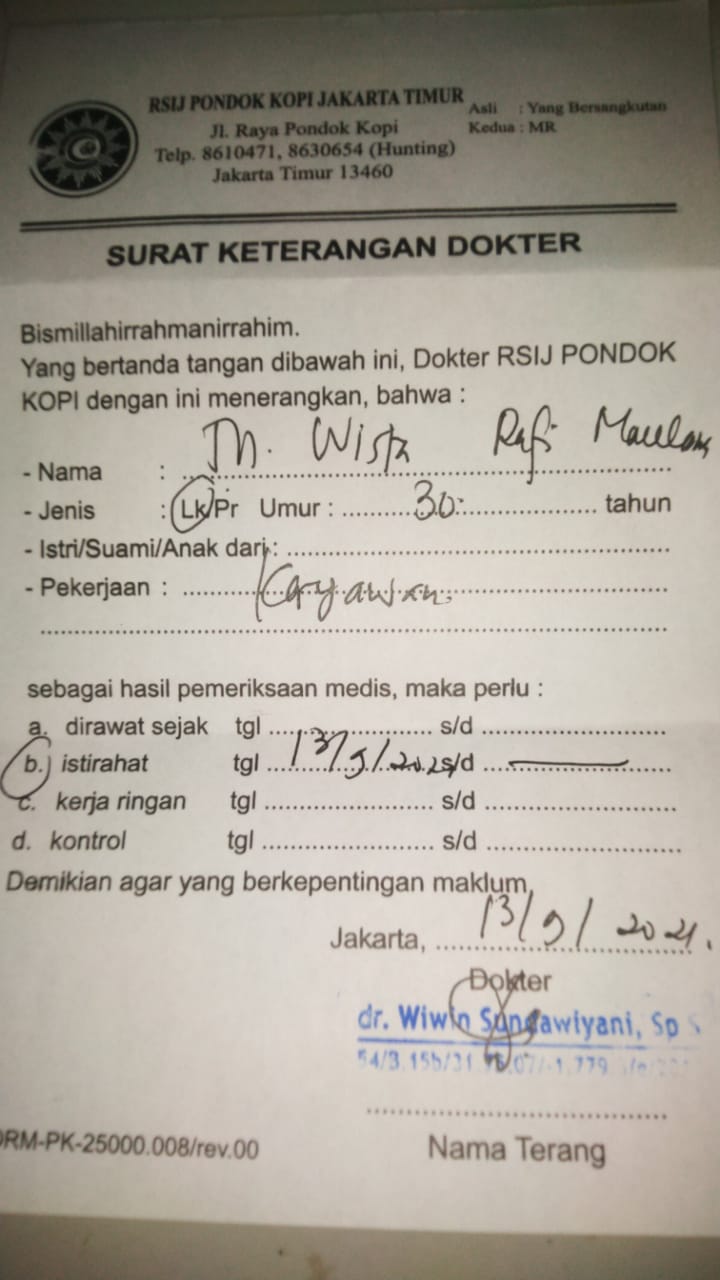 RSIJ PONDOK KOPI JAKARTA TIMUR
Jl. Raya Pondok Kopi
Telp. 8610471, 8630654 (Hunting)
Jakarta Timur 13460
Asli : Yang Bersangkutan
Kedua : MR
SURAT KETERANGAN DOKTER
Bismillahirrahmanirrahim.
Yang bertanda tangan dibawah ini, Dokter RSIJ PONDOK
KOPI dengan ini menerangkan, bahwa :
- Nama : Rafi
- Jenis : Lk/Pr Umur : 30 tahun
- Istri/Suami/Anak dari :
- Pekerjaan : Karyawan
sebagai hasil pemeriksaan medis, maka perlu :
a. dirawat sejak tgl s/d
b. istirahat tgl s/d
c. kerja ringan tgl s/d
d. kontrol tgl s/d
Demikian agar yang berkepentingan maklum,
Jakarta, 13/9/2021.
Dokter
dr. Wiwin Sundawiyani, Sp S
Nama Terang
ORM-PK-25000.008/rev.00